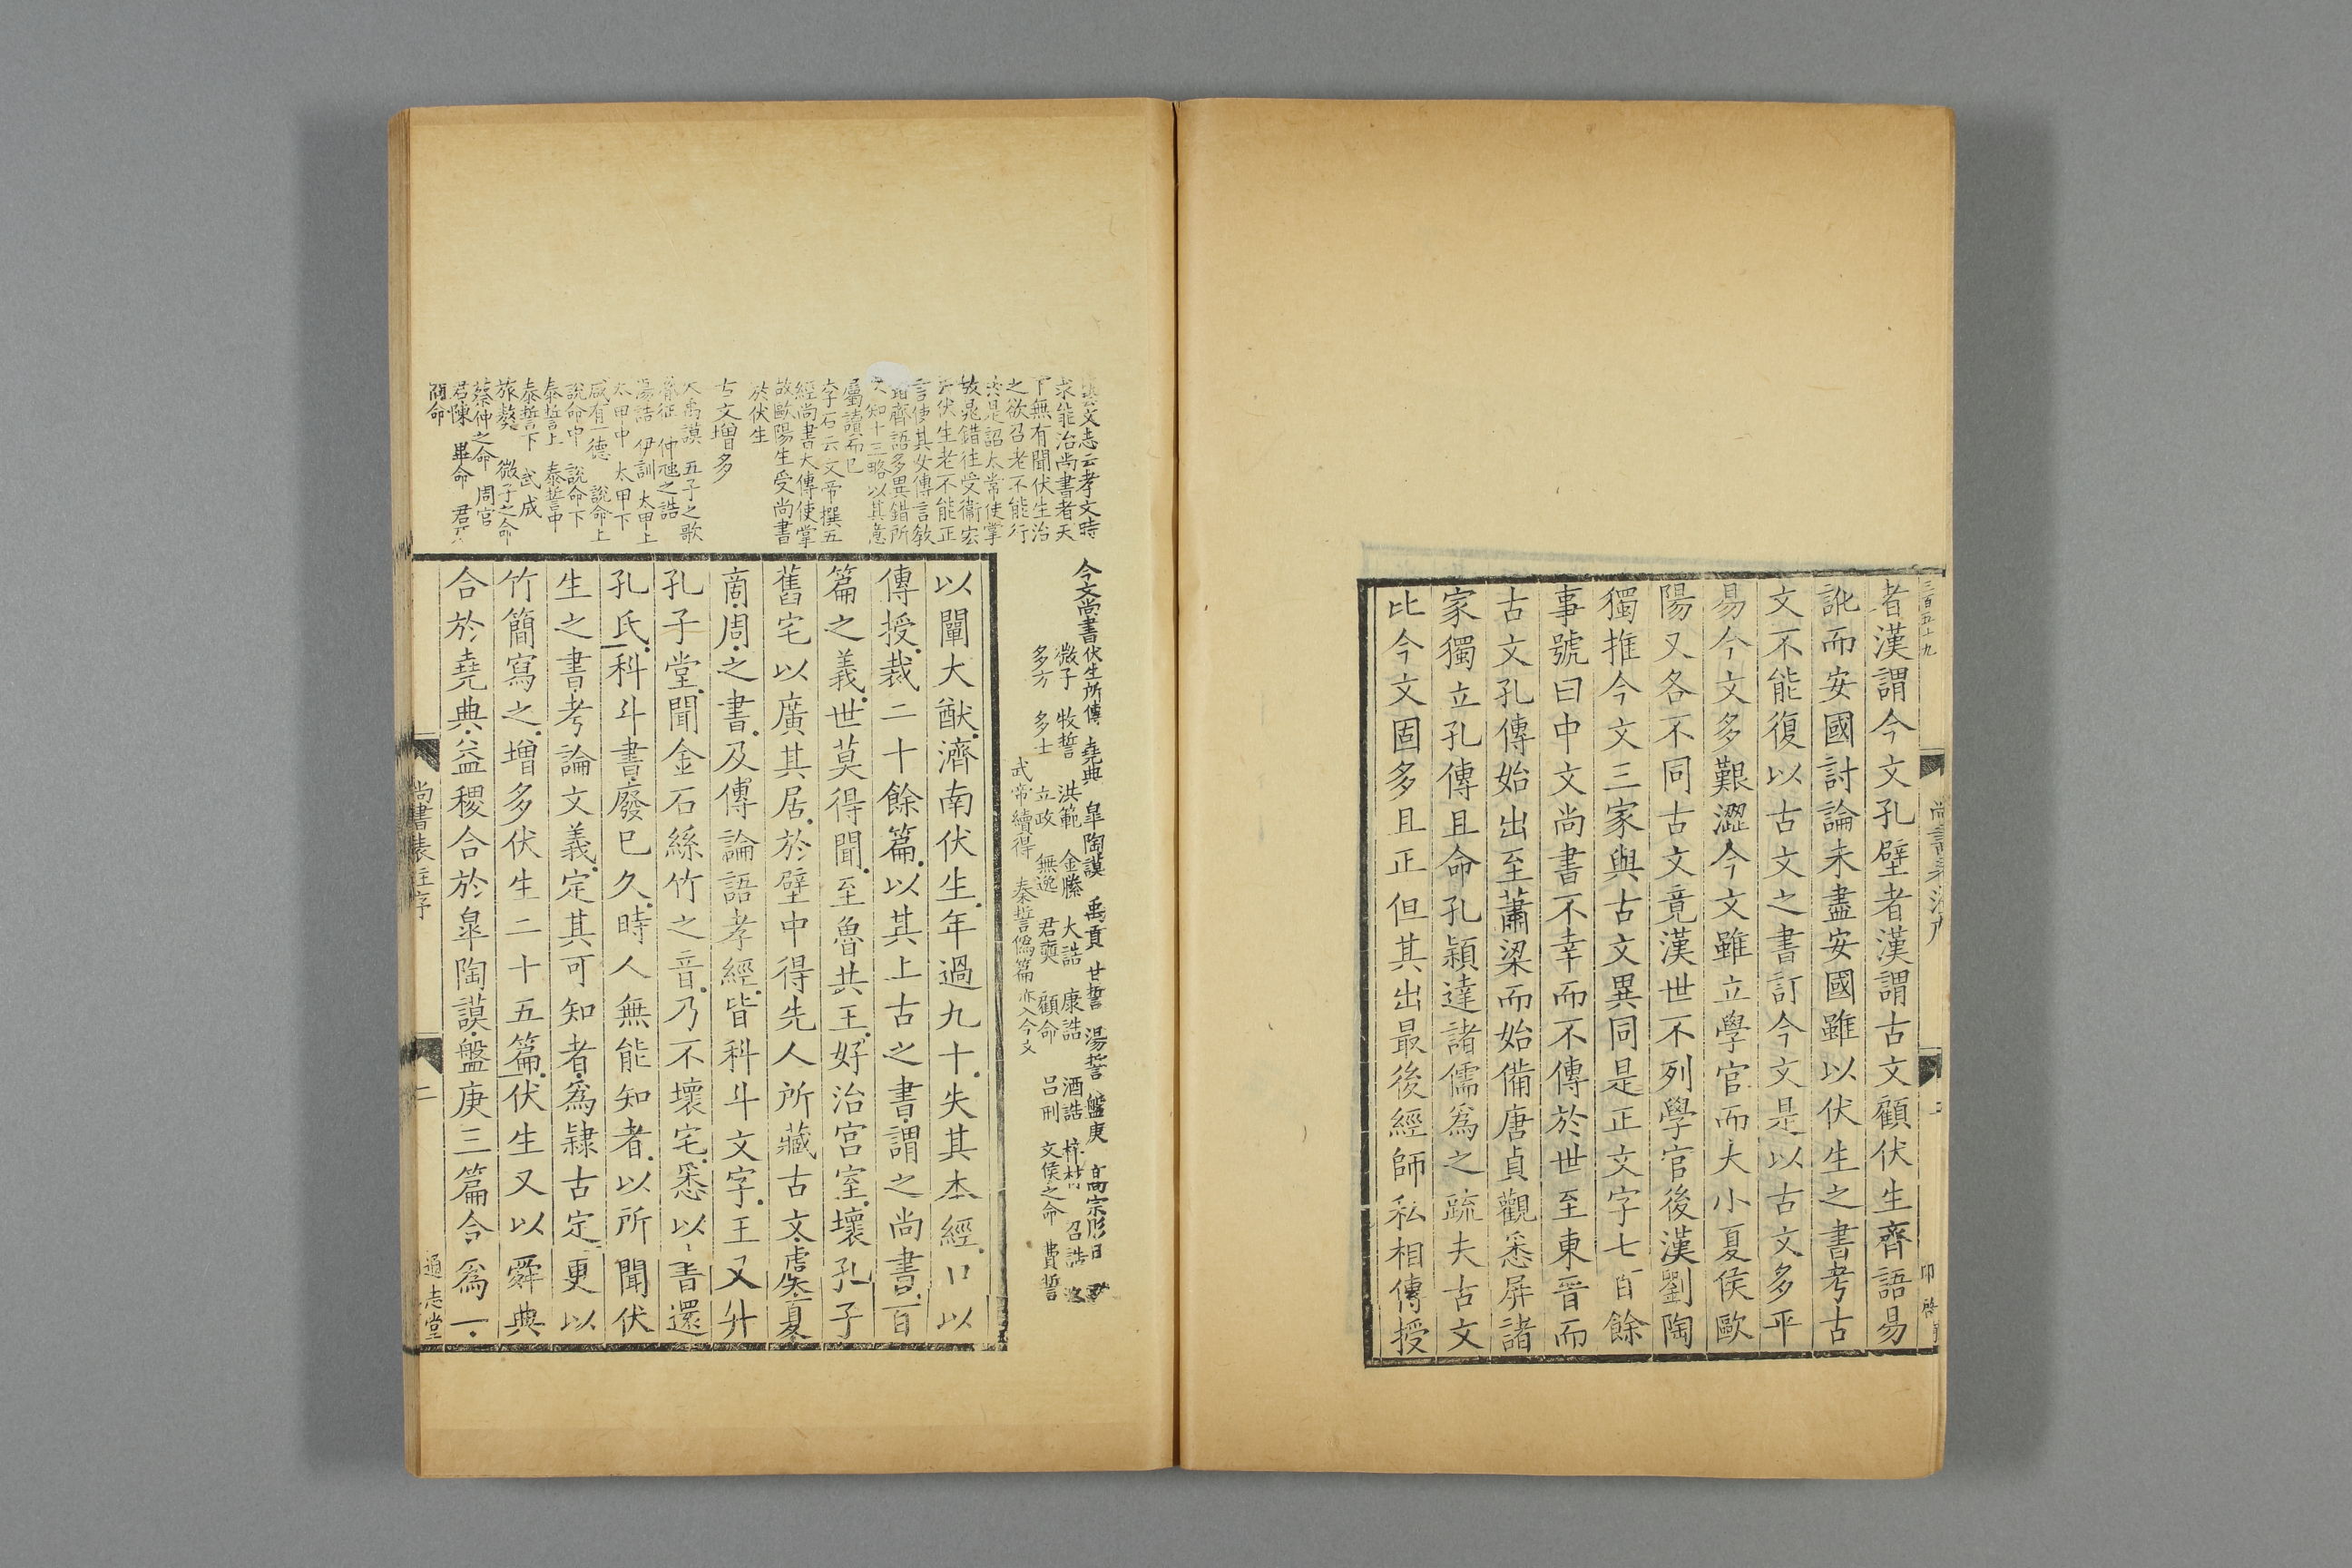 三百五十九
者漢謂今文孔壁者漢謂古文顧伏生齊語易
訛而安國討論未盡安國雖以伏生之書考古
文不能復以古文之書訂今文是以古文多平
易今文多艱澀今文雖立學官而大小夏侯歐
陽又各不同古文竟漢世不列學官後漢劉陶
獨推今文三家與古文異同是正文字七百餘
事號曰中文尚書不幸而不傳於世至東晉而
古文孔傳始出至蕭梁而始備唐貞觀悉屏諸
家獨立孔傳且命孔穎達諸儒爲之疏夫古文
比今文固多且正但其出最後經師私相傳授
藝文志云孝文時
求能治尚書者天
下無有聞伏生治
之欲召老不能行
於是詔太常使掌
故晁錯往受衞宏
云伏生老不能正
言使其女傳言教
錯齊語多異錯所
不知十三略以其意
屬讀而已
李石云文帝撰五
經尚書大傳使掌
故歐陽生受尚書
於伏生
古文增多
大禹謨 五子之歌
胤征 仲虺之誥
湯誥 伊訓 太甲上
太甲中 太甲下
咸有一德 說命上
說命中 說命下
泰誓上 泰誓中
泰誓下 武成
旅獒 微子之命
蔡仲之命 周官
君陳 畢命 君牙
冏命
今文尚書伏生所傳 堯典 皐陶謨 禹貢 甘誓 湯誓 盤庚 高宗肜日
微子 牧誓 洪範 金縢 大誥 康誥 酒誥 梓材 召誥
多方 多士 立政 無逸 君奭 顧命 呂刑 文侯之命 費誓
武帝續得 秦誓僞篇亦入今文
以闡大猷濟南伏生年過九十失其本經口以
傳授裁二十餘篇以其上古之書謂之尚書百
篇之義世莫得聞至魯共王好治宮室壞孔子
舊宅以廣其居於壁中得先人所藏古文虞夏
商周之書及傳論語孝經皆科斗文字王又升
孔子堂聞金石絲竹之音乃不壞宅悉以書還
孔氏科斗書廢已久時人無能知者以所聞伏
生之書考論文義定其可知者爲隸古定更以
竹簡寫之增多伏生二十五篇伏生又以舜典
合於堯典益稷合於皐陶謨盤庚三篇合爲一
尚書表注序
二
通志堂